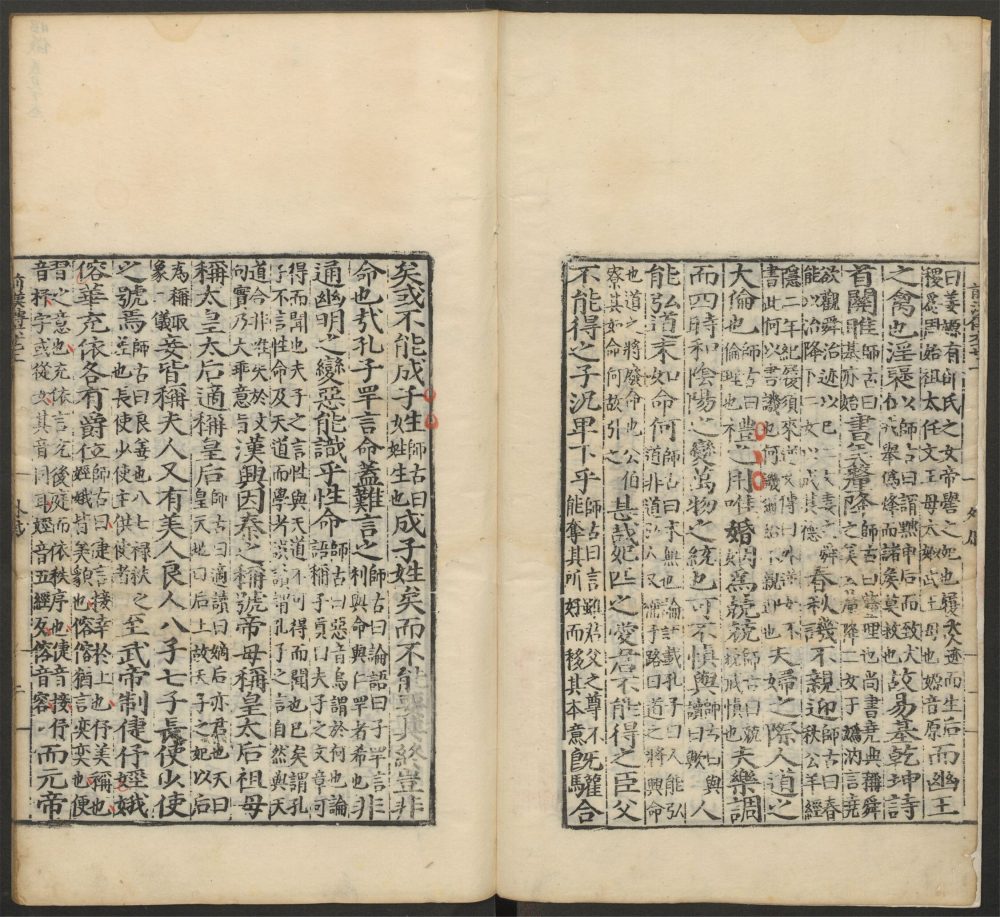 曰姜嫄有邰氏之女帝嚳之妃也履大人迹而生后
稷爲周始祖太任文王母太姒武王母也嫄音原而幽王
之禽也淫襃姒師古曰謂黜申后而致犬
戎舉偽烽而諸矦莫救也故易基乾坤詩
首關雎師古曰
基亦始書美釐降師古曰釐理也尚書堯典稱舜
之美云釐降二女于嬀汭言堯
欲觀舜治迹以己
能以治降下二女以成其德春秋譏不親迎師古曰春
秋公羊經
隱二年紀履須來逆女傳曰外逆女不
書此何以書譏也何譏爾始不親迎也夫婦之際人道之
大倫也師古曰
倫理也禮之用唯婚姻爲兢兢師古曰
兢兢戒慎也夫樂調
而四時和陰陽之變萬物之統也可不慎與師古曰與
讀曰歟人
能弘道末如命何師古曰末無也論語載孔子曰人能弘
道非道弘人又稱子路曰道之將興命
也道之將廢命也公伯
寮其如命何故引之甚哉妃匹之愛君不能得之臣父
不能得之子況卑下乎師古曰言雖君父之尊不
能奪其所好而移其本意旣驩合
矣或不能成子姓師古曰
姓生也成子姓矣而不能要其終豈非
命也哉孔子罕言命蓋難言之師古曰論語曰子罕言
利與命與仁罕者希也非
通幽明之變惡能識乎性命師古曰惡音烏謂於何也論
語稱子貢曰夫子之文章可
得而聞也夫子之言性與天道不可得而聞也已矣謂孔
子不言性命及天道而學者誤讀謂孔子之言自然與天
道合非唯失於文
句實乃大乖意旨漢興因秦之稱號帝母稱皇太后祖母
稱太皇太后適稱皇后師古曰適讀曰嫡后亦君也天曰
皇天地曰后土故天子之妃以后
爲稱取
象二儀妾皆稱夫人又有美人良人八子七子長使少使
之號焉師古曰良善也八七祿秩之
差也長使少使主供使者至武帝制倢伃娙娥
傛華充依各有爵位師古曰倢言接幸於上也伃美稱也
娙娥皆美貌也傛傛猶言奕奕也便
習之意也充依言充後庭而依秩序也倢音接伃
音杼字或從女其音同耳娙音五經反傛音容而元帝